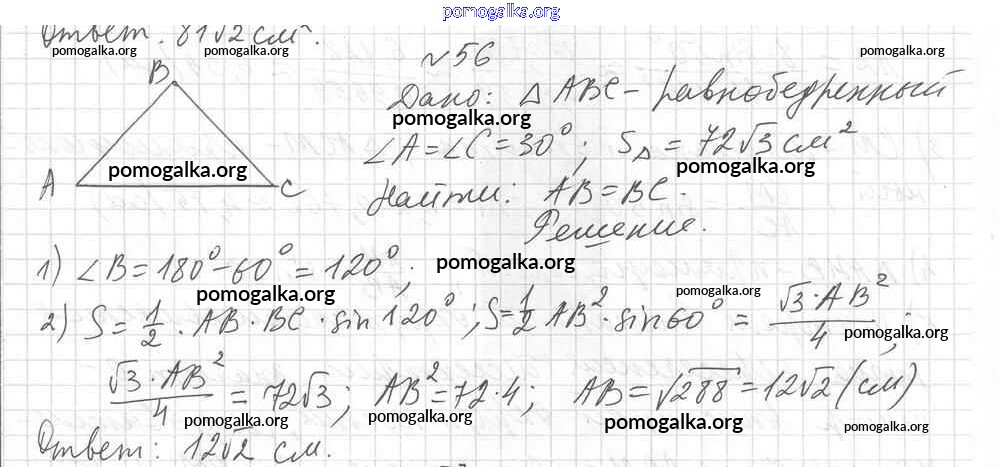 pomogalka.org
Ответ. 81√2 см².
pomogalka.org pomogalka.org pomogalka.org
№56
B
Дано: △ ABC - равнобедренный
pomogalka.org
∠A = ∠C = 30°; S△ = 72√3 см²
pomogalka.org pomogalka.org
A C
Найти: AB = BC.
Решение.
1) ∠B = 180° - 60° = 120°;
pomogalka.org
pomogalka.org pomogalka.org
2) S = 1/2 · AB · BC · sin 120°; S = 1/2 AB² · sin 60° = √3 · AB²/4;
pomogalka.org
√3 · AB²/4 = 72√3; AB² = 72 · 4; AB = √288 = 12√2 (см)
pomogalka.org pomogalka.org pomogalka.org pomogalka.org
Ответ: 12√2 см.